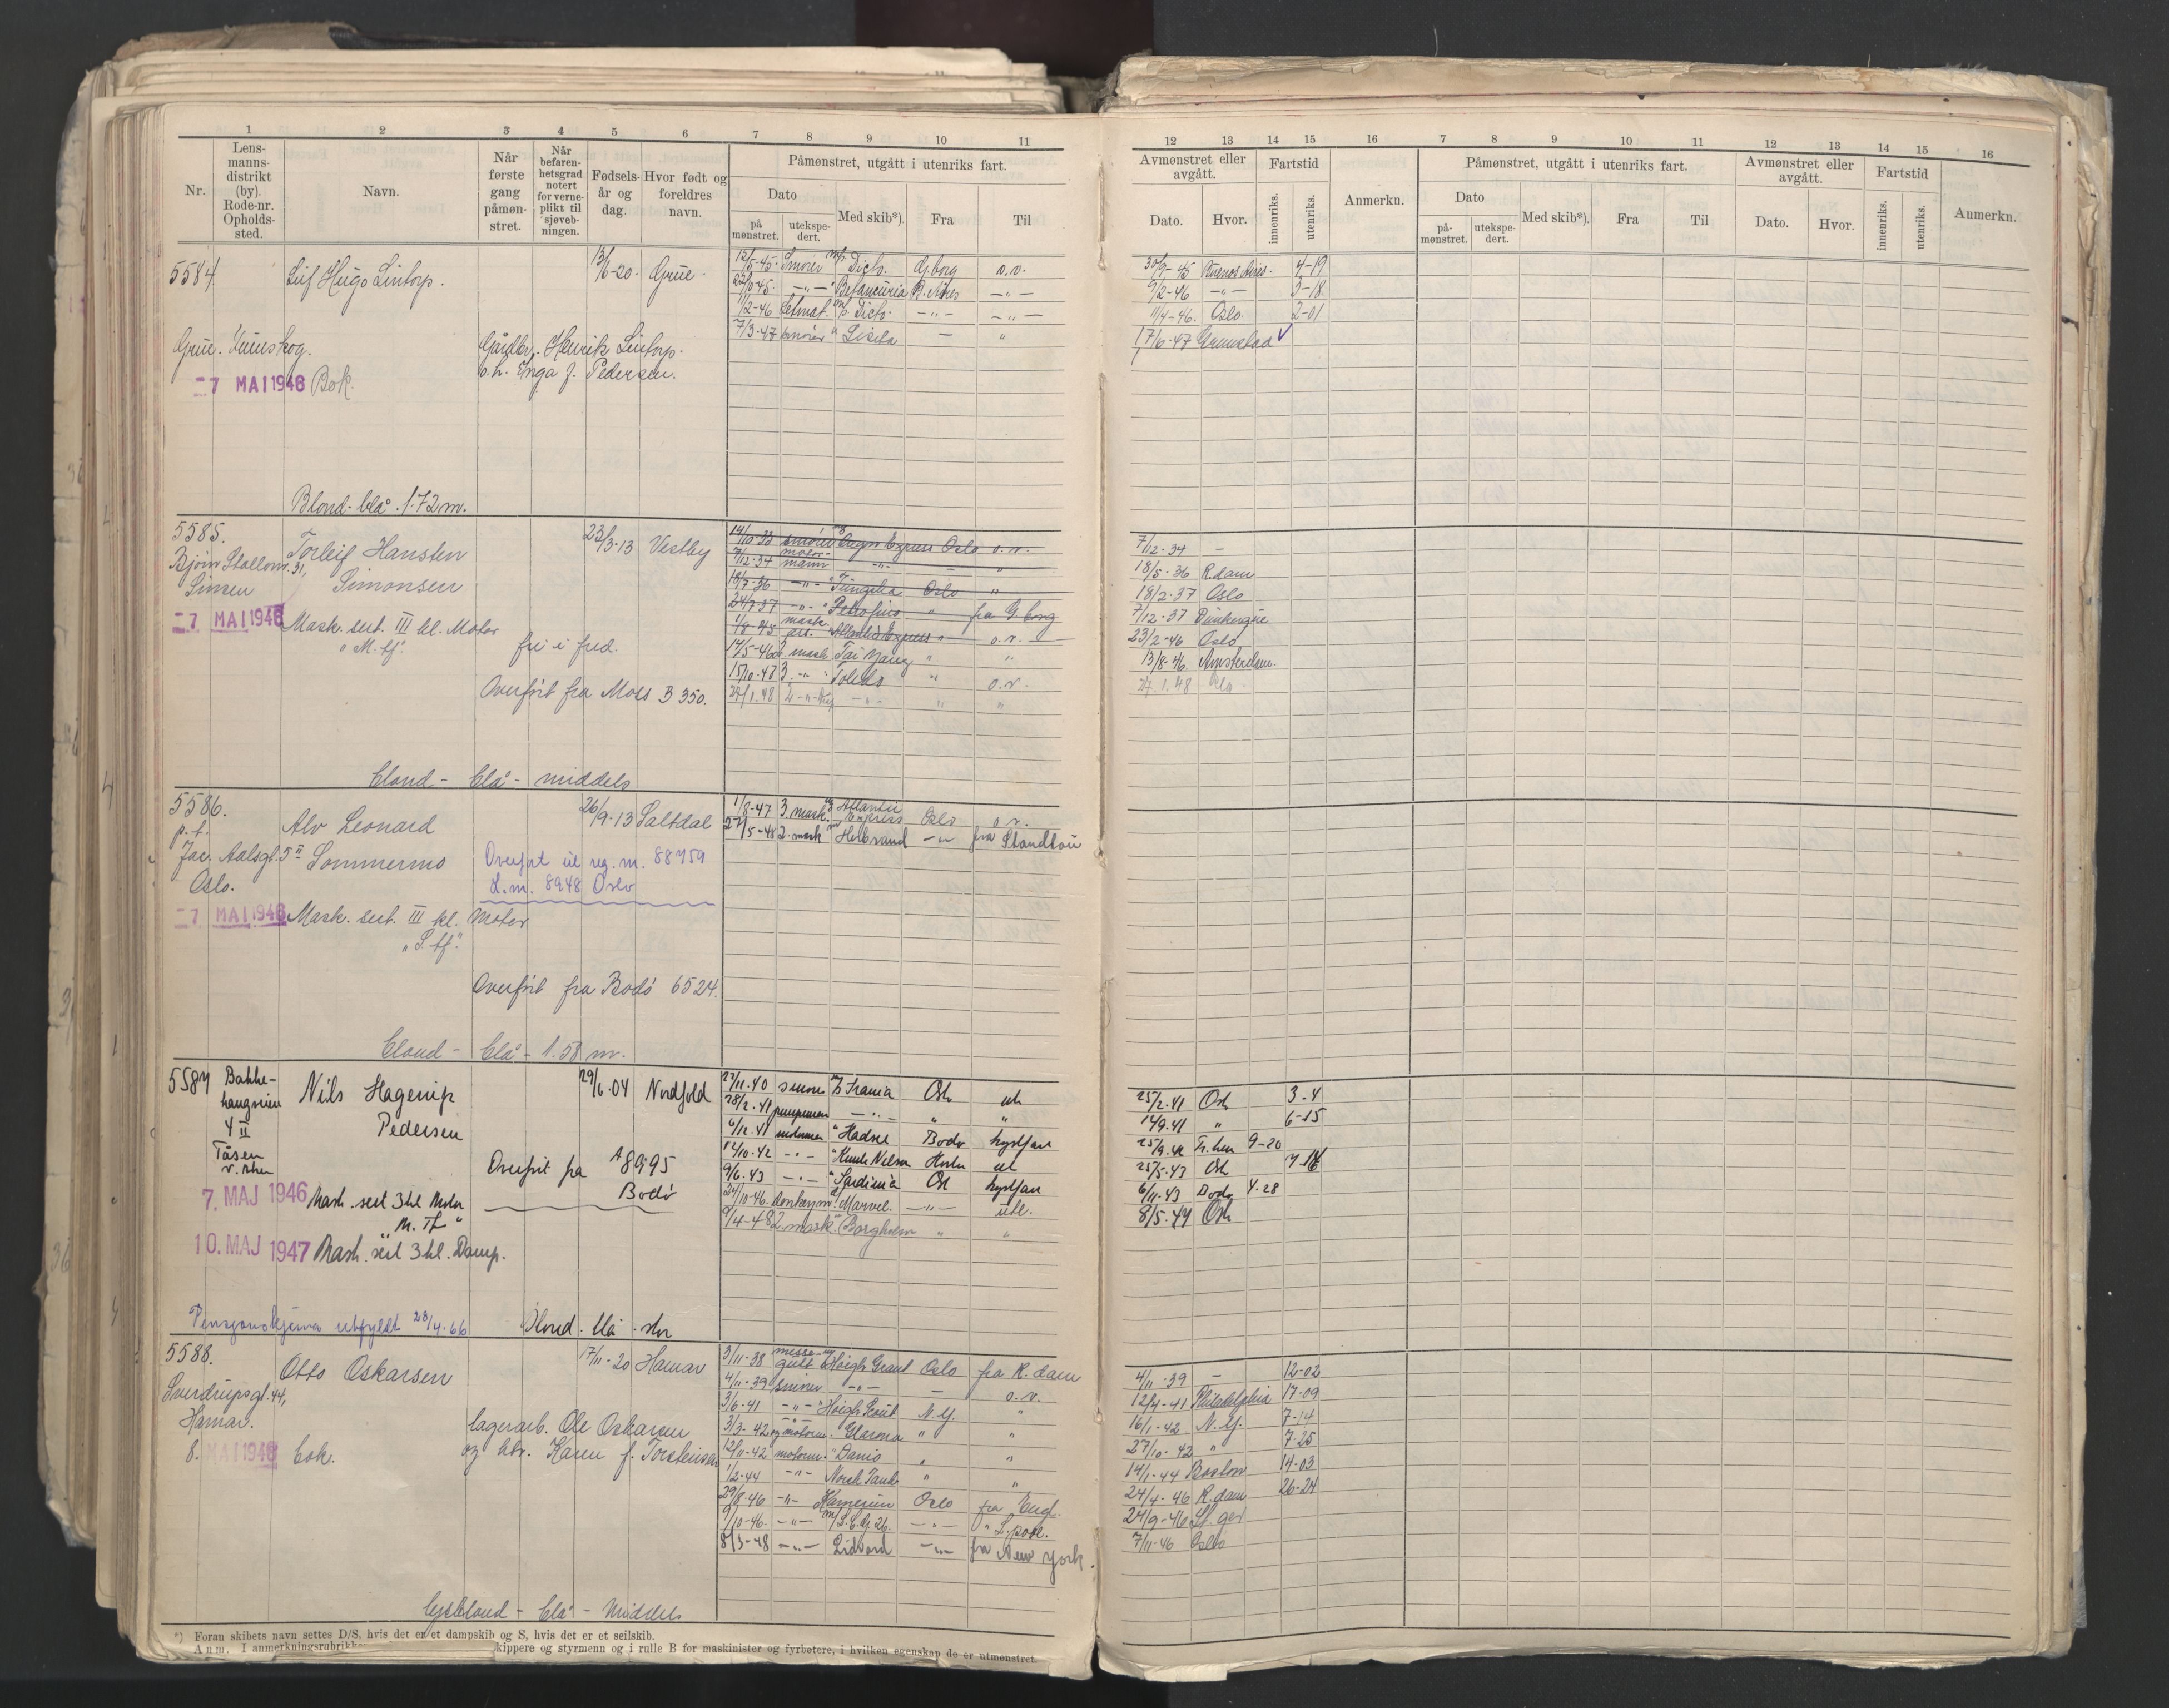 1 2 3 4 5 6 7 8 9 10 11
Nr.
Lensmannsdistrikt (by). Rode-nr. Opholdssted.
Navn.
Når første gang påmønstret.
Når befarenhetsgrad notert for verneplikt til sjøvebningen.
Fødselsår og dag.
Hvor født og foreldres navn.
Påmønstret, utgått i utenriks fart.
Dato
på mønstret.
utekspedert.
Med skib*).
Fra
Til
12 13 14 15 16 7 8 9 10 11 12 13 14 15 16
Avmønstret eller avgått.
Dato.
Hvor.
Fartstid
innenriks.
utenriks.
Anmerkn.
Påmønstret, utgått i utenriks fart.
Dato
påmønstret.
utekspedert.
Med skib*)
Fra
Til
Avmønstret eller avgått.
Dato.
Hvor.
Fartstid
innenriks.
utenriks.
Anmerkn.
5584 Leif Hugo Lintorp. 13/6-20. Grue.
Grue. Finnskog. Gårdbr. Henrik Lintorp.
o.h. Inga f. Pedersen.
-7 MAI 1946 Bok.
12/5-45. Smører M/s Dicto. G.borg o.v.
22/10-45. -"- " Betancuria B. Aires -"-
11/2-46 Letmat. M/s. Dicto. -"- -"-
7/3-47 smører " Lisita — "
30/9-45 Buenos Aires. 4-19
9/2-46 -"- 3-18
11/4-46. Oslo. 2-01
17/6-47 Grimstad
Blond. blå. 1.72 m.
5585. Torleif Hansten 23/3-13 Vestby
Bjørn Stallarsv. 31, Simonsen
Sinsen
-7 MAI 1946 Mask. sert. III kl. Motor
"M. tf." fri i fred.
Overført fra Moss B 350.
14/10-33 smører Express Oslo o.v.
7/12-34 motormann -"- — "
18/7-36 -"- " Tungsha Oslo "
24/7-37 -"- " Petrofina " fra G.borg
1/8-45 mask. ass. " Atlantic Express " o.v.
14/5-46 2. mask. Tai Yang " "
15/10-47 3. -"- " Toledo " o.v.
24/1.48 2 -"- -"- " "
7/12-34 —
18/5-36 R.dam
18/2-37 Oslo
7/12-37 Dunkerque
23/2-46 Oslo
13/8-46. Amsterdam.
24.1.48 Oslo.
blond - blå - middels
5586. Alv Leonard 26/9-13 Saltdal
p.t.
Jac. Aalsgt. 5 II Sommermo
Oslo.
Overført til reg. nr. 88759
L.nr. 8948 Oslo
-7 MAI 1946 Mask. sert. III kl. Motor
"S tf."
Overført fra Bodø 6524.
1/8-47 3. mask. Atlantic Express Oslo o.v.
27/5-48 2. mask Helbrand -"- fra
blond - blå - 1.58 m.
5587 Bakkehaugveien 4 II Tåsen v. Aker Nils Hagerup 29/6-04 Nordfold
Pedersen
Overført fra A 8995
Bodø
7. MAJ 1946 Mask. sert 3 kl Motor
M. Tf "
10. MAJ 1947 Mask. sert 3 kl. Damp.
Pensjonsskjema utfyllt 28/4-66 Blond. blå. stor
27/11.40 smører Frania Oslo ut
28/2.41 pumpeman -"- " "
6/12.41 motorman " Hadsel Bodø kystfart
12/10.42 -"- " Knute Nelson Horten ut
9/6.43 -"- " Sardinia Osl kystfart
24/10-46. donkeym. Marvel. -"- utl.
9/4-48 2. mask " Borgholm " "
25/2.41 Osl 3-4
14/9.41 " 6-15
25/9.42 Tr.heim 9-20
25/5.43 Osl
6/11.43 Bodø 4-28
8/5.47 Osl
5588. Otto Oskarsen 17/11-20 Hamar
Sverdrupsgt. 44,
Hamar. lagerarb. Ole Oskarsen
og htr. Karen f. Torstensen
8. MAI 1946 bok.
3/11-38 messegutt Høigh Grant Oslo fra R.dam
4/11-39 smører -"- — o.v.
3/6-41 -"- " Høigh Scout N.Y. "
3/3-42 og motorm. Glarona " "
12/11-42 motorm. " Danio " "
1/2-44 -"- Norsk Tank " "
29/8-46 -"- Kamerun Oslo fra Engl.
9/10-46. -"- M/ L.C.G. 26. -"- " L.pool.
8/3-48 -"- Lidvard -"- fra New York.
4/11-39 — 12-02
12/4-41 Philadelphia 17-09
16/1-42 N.Y. 7-14
27/10-42 " 7-25
14/1-44 Boston 14-03
24/4-46 R.dam 26-24
24/9-46
7/11-46 Oslo
lysblond - blå - middels
*) Foran skibets navn settes D/S, hvis det er et dampskib og S, hvis det er et seilskib.
Anm. I anmerkningsrubrikke kippere og styrmenn og i rulle B for maskinister og fyrbøtere, i hvilken egenskap de er utmønstret.